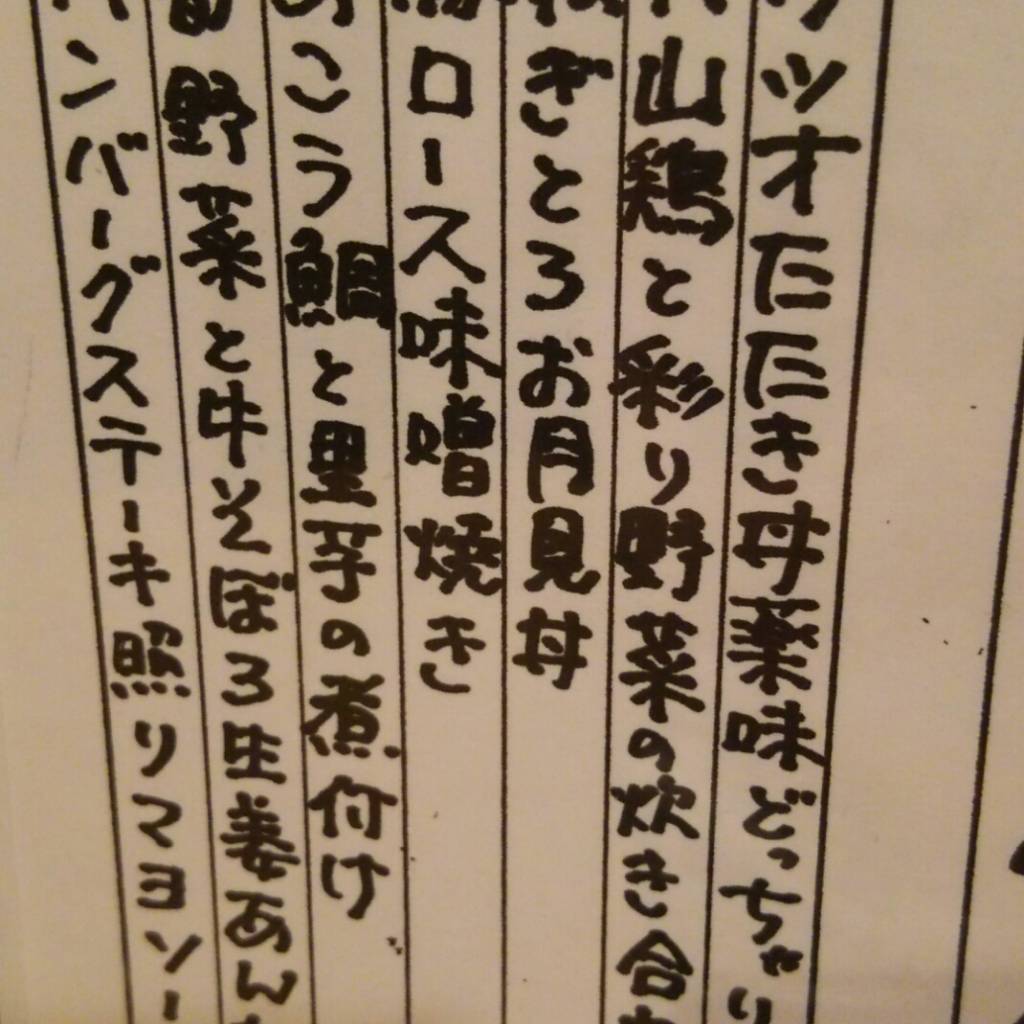 ツオたたき丼薬味どっちゃり
山鶏と彩り野菜の炊き合
ぎとろお月見丼
ロース味噌焼き
こう鯛と里芋の煮付け
野菜と牛そぼろ生姜あん
ンバーグステーキ照りマヨソー